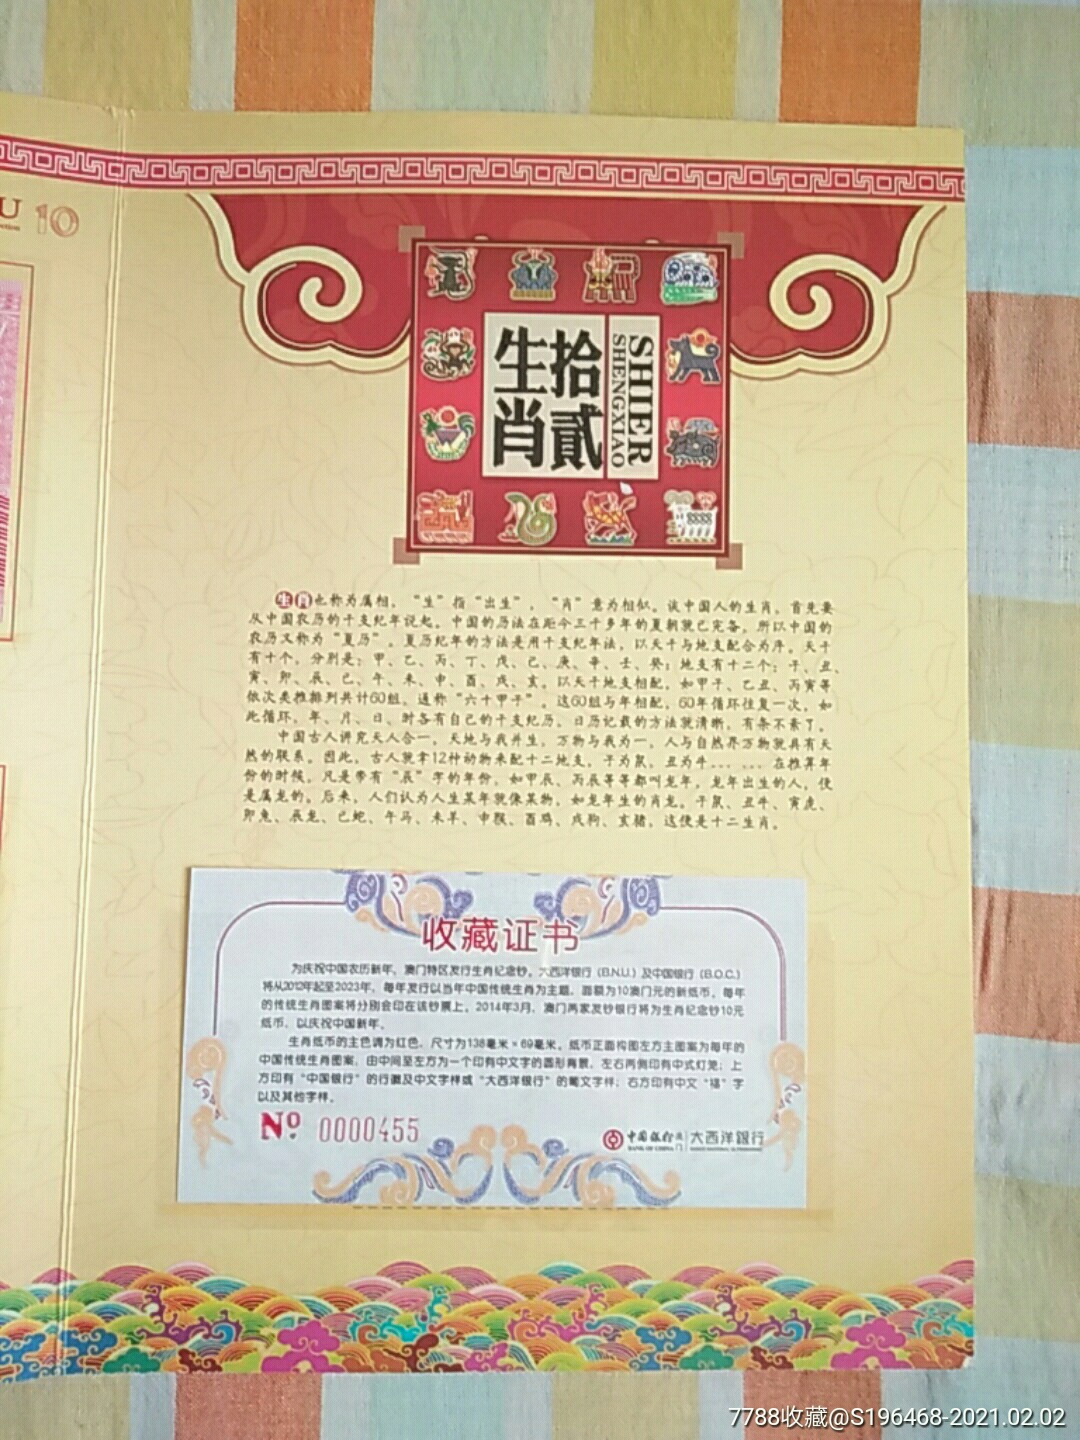 U 10
拾贰
生肖
SHIER
SHENGXIAO
生肖也称为属相，“生”指“出生”，“肖”意为相似。谈中国人的生肖，首先要
从中国农历的干支纪年说起。中国的历法在距今三千多年的夏朝就已完备，所以中国的
农历又称为“夏历”。夏历纪年的方法是用干支纪年法，以天干与地支配合为序。天干
有十个，分别是：甲、乙、丙、丁、戊、己、庚、辛、壬、癸；地支有十二个：子、丑、
寅、卯、辰、巳、午、未、申、酉、戌、亥。以天干地支相配，如甲子、乙丑、丙寅等
依次类推排列共计60组，通称“六十甲子”。这60组与年相配，60年循环往复一次，如
此循环，年、月、日、时各有自己的干支纪历，日历记载的方法就清晰，有条不紊了。
中国古人讲究天人合一，天地与我并生，万物与我为一，人与自然界万物就具有天
然的联系。因此，古人就拿12种动物来配十二地支，子为鼠，丑为牛... ... 在推算年
份的时候，凡是带有“辰”字的年份，如甲辰、丙辰等等都叫龙年，龙年出生的人，便
是属龙的。后来，人们认为人生某年就像某物，如龙年生的肖龙。子鼠、丑牛、寅虎、
卯兔、辰龙、巳蛇、午马、未羊、申猴、酉鸡、戌狗、亥猪，这便是十二生肖。
收藏证书
为庆祝中国农历新年，澳门特区发行生肖纪念钞。大西洋银行（B.N.U.）及中国银行（B.O.C.）
将从2012年起至2023年，每年发行以当年中国传统生肖为主题，面额为10澳门元的新纸币。每年
的传统生肖图案将分别会印在该钞票上。2014年3月，澳门两家发钞银行将为生肖纪念钞10元
纸币，以庆祝中国新年。
生肖纸币的主色调为红色，尺寸为138毫米×69毫米。纸币正面构图左方主图案为每年的
中国传统生肖图案，由中间至左方为一个印有中文字的圆形背景，左右两侧印有中式灯笼；上
方印有“中国银行”的行徽及中文字样或“大西洋银行”的葡文字样；右方印有中文“福”字
以及其他字样。
No. 0000455
中国银行 澳门 大西洋銀行
BANK OF CHINA
7788收藏@S196468-2021.02.02